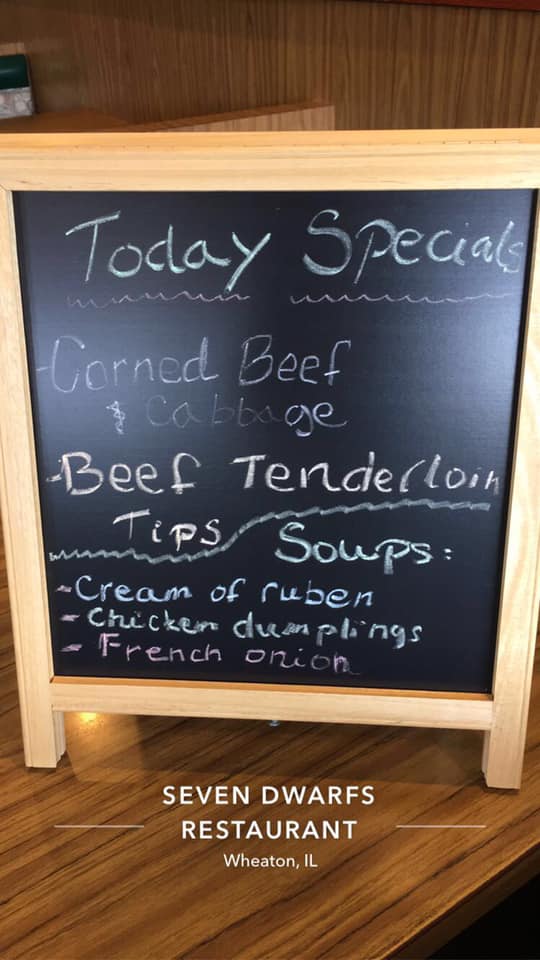 Today Specials
-Corned Beef
& Cabbage
-Beef Tenderloin
Tips
Soups:
-Cream of ruben
-Chicken dumplings
-French onion
SEVEN DWARFS
RESTAURANT
Wheaton, IL